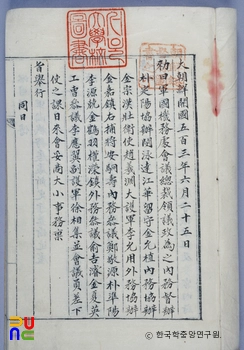 大朝鮮開國五百三年六月二十五日
勅曰軍國機務處會議總裁領議政為之內務督辦
朴定陽協辦閔泳達江華留守金允植內務協辦
金宗漢壯衛使趙羲淵大護軍李允用外務協辦
金嘉鎮右捕將安駉壽內務參議鄭敬源朴準陽
李源兢金鶴羽權瀅鎮外務參議俞吉濬金夏英
工曹參議李應翼副護軍徐相集並會議員差下
使之課日來會妥商大小事務稟
旨舉行
同日
ⓒ 한국학중앙연구원.